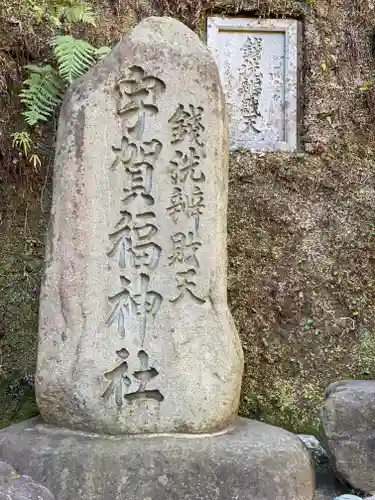 錢洗辨財天
錢洗辨財天
宇賀福神社